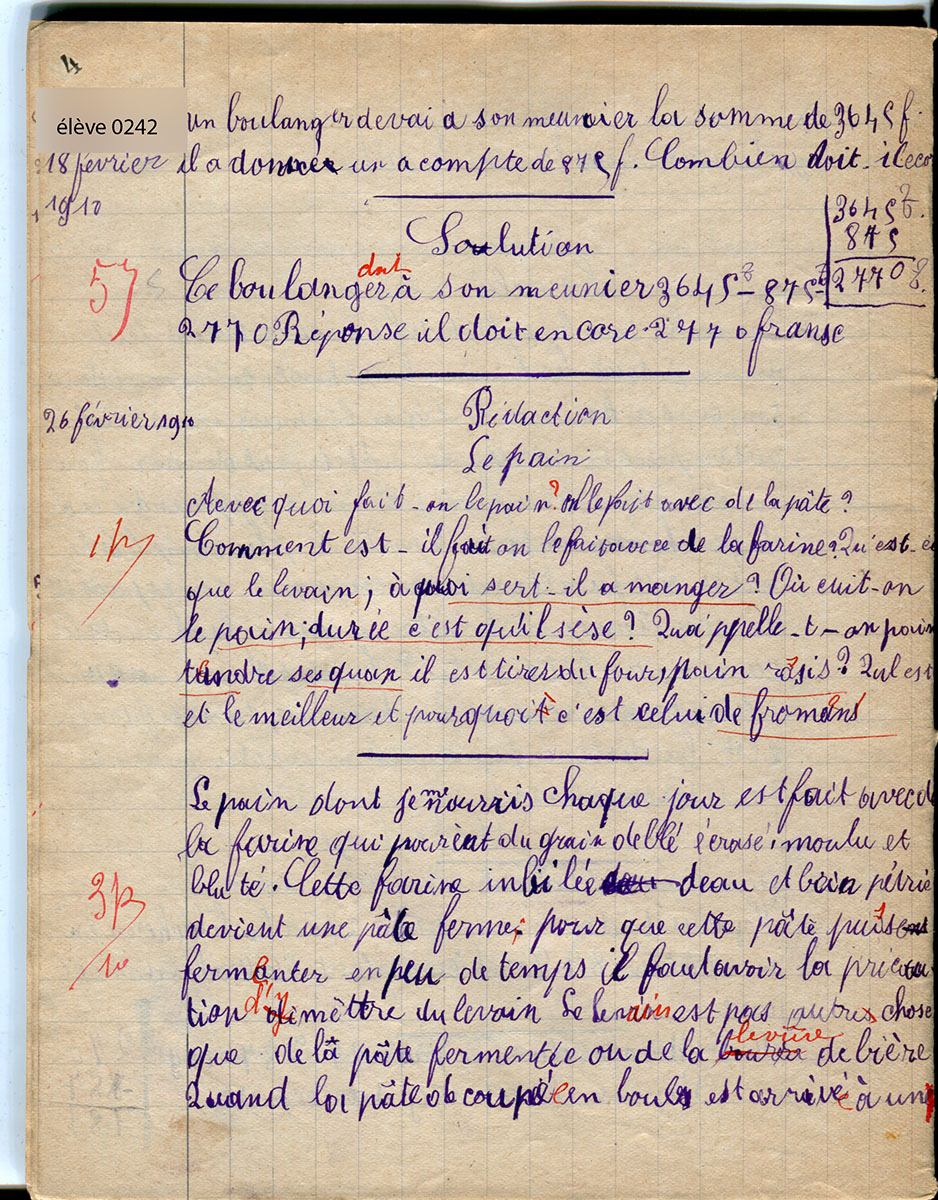 4
élève 0242
un boulanger devai a son meunier la somme de 3645 f.
18 février il a donnéer un acompte de 875 f. Combien doit-il
1910
3645 f.
875
2770 f.
Soulution
57
doit
Ce boulanger à son meunier 3645 f - 875 f
2770 Réponse il doit encore 2770 fransc
26 février 1910
Rédaction
Le pain
Avec quoi fait-on le pain? on le fait avec de la pâte?
1p
Comment est-il fait on le fait avec de la farine? Qu'est-ce
que le levain; à quoi sert-il a manger? Où cuit-on
le pain; durée c'est qu'il sèse? Qua'ppelle-t-on pain
tandre ses quan il est tires du four, pain rasis? Qul est
et le meilleur et pourquoit c'est celui de fromans
Le pain dont je m'nourris chaque jour est fait avec de
la farine qui provient du grain de blé érasé, moulu et
bluté. Cette farine inbibée deau et bien pétrie
3p
10
devient une pâte ferme; pour que cette pâte puis
fermenter en peu de temps il faut avoir la précau
tion d'y mèttre du levain Le levain est pas autres chose
levûre
que de la pâte fermentée ou de la de bière
Quand la pâte découpée en boules est arrivée à un